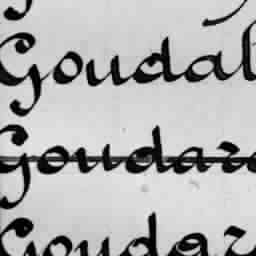 Goudal
Goudare
Goudar